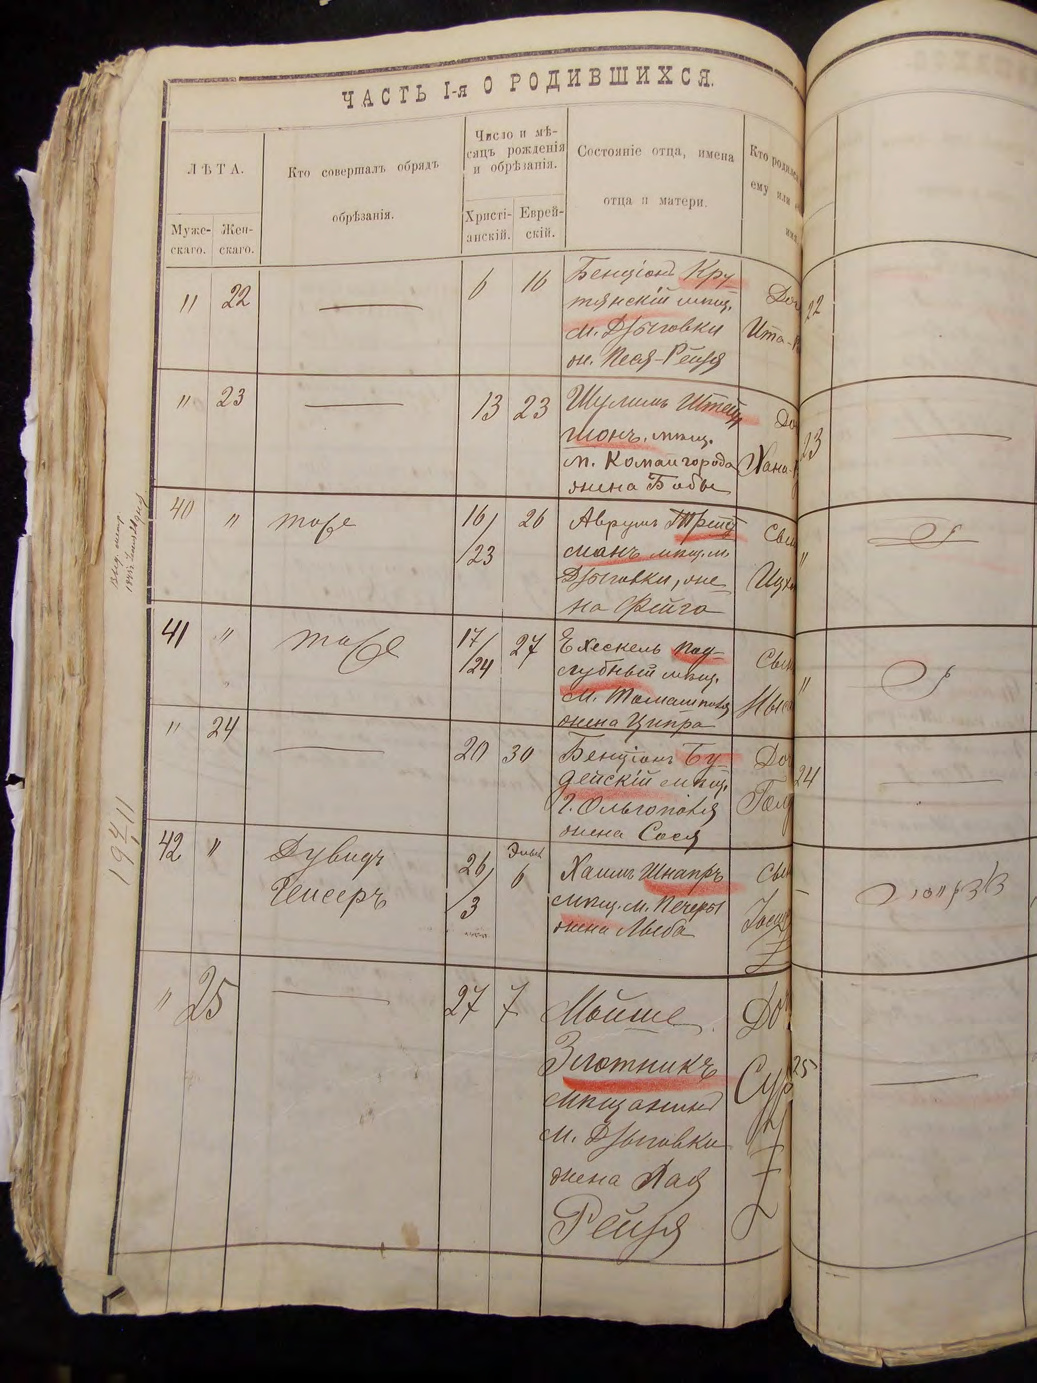 ЧАСТЬ I-я О РОДИВШИХСЯ.
ЛѢТА.
Муже-
скаго.
Жен-
скаго.
Кто совершалъ обрядъ
обрѣзанія.
Число и мѣ-
сяцъ рожденія
и обрѣзанія.
Христі-
анскій.
Еврей-
скій.
Состояніе отца, имена
отца и матери.
Кто родился
ему или
" 22 — 6 16
Бенціонъ Кру
тянскій мѣщ.
м. Дзыговки
жн. Песя-Рейзя
Доч
Ита-
22
" 23 — 13 23
Шулимъ Штейн
шонъ, мѣщ.
м. Комаигорода
жена Бабы
До
Хана-
23
40 " тоже 16/23 26
Аврумъ
манъ мѣщ. м
Дзыговки, же-
на Фейга
Сын
Ицх
"
41 " тоже 17/24 27
Ехескель Под-
лубный мѣщ.
м. Томашполя
жена Ципра
Сын
"
" 24 — 20 30
Бенціонъ Бу
дейскій мѣщ.
г. Ольгополя
жена Сося
До
24
42 " Дувидъ
Гейсеръ
26/3
Элыл
6
Хаимъ Шнапръ
мѣщ. м. Печеры
жена Лыба
Сын
" 25 — 27 7
Мойше
Злотникъ
мѣщанинъ
м. Дзыговки
жена Хая
Рейзя
До
Сур
25
1941